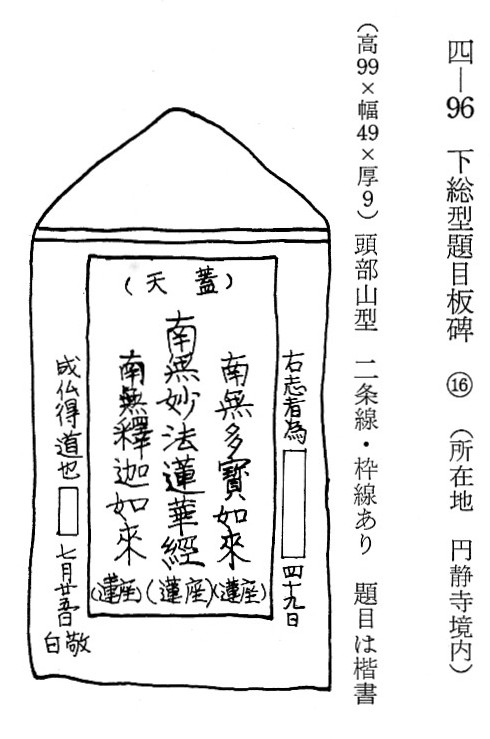 四―96 下総型題目板碑 ⑯ (所在地 円静寺境内)
(高99×幅49×厚9) 頭部山型 二条線・枠線あり 題目は楷書
(天蓋)
右志者為 四十九日
南無多寶如來
(蓮座)
南無妙法蓮華經
(蓮座)
南無釋迦如來
(蓮座)
成仏得道也 七月廿五日
敬
白